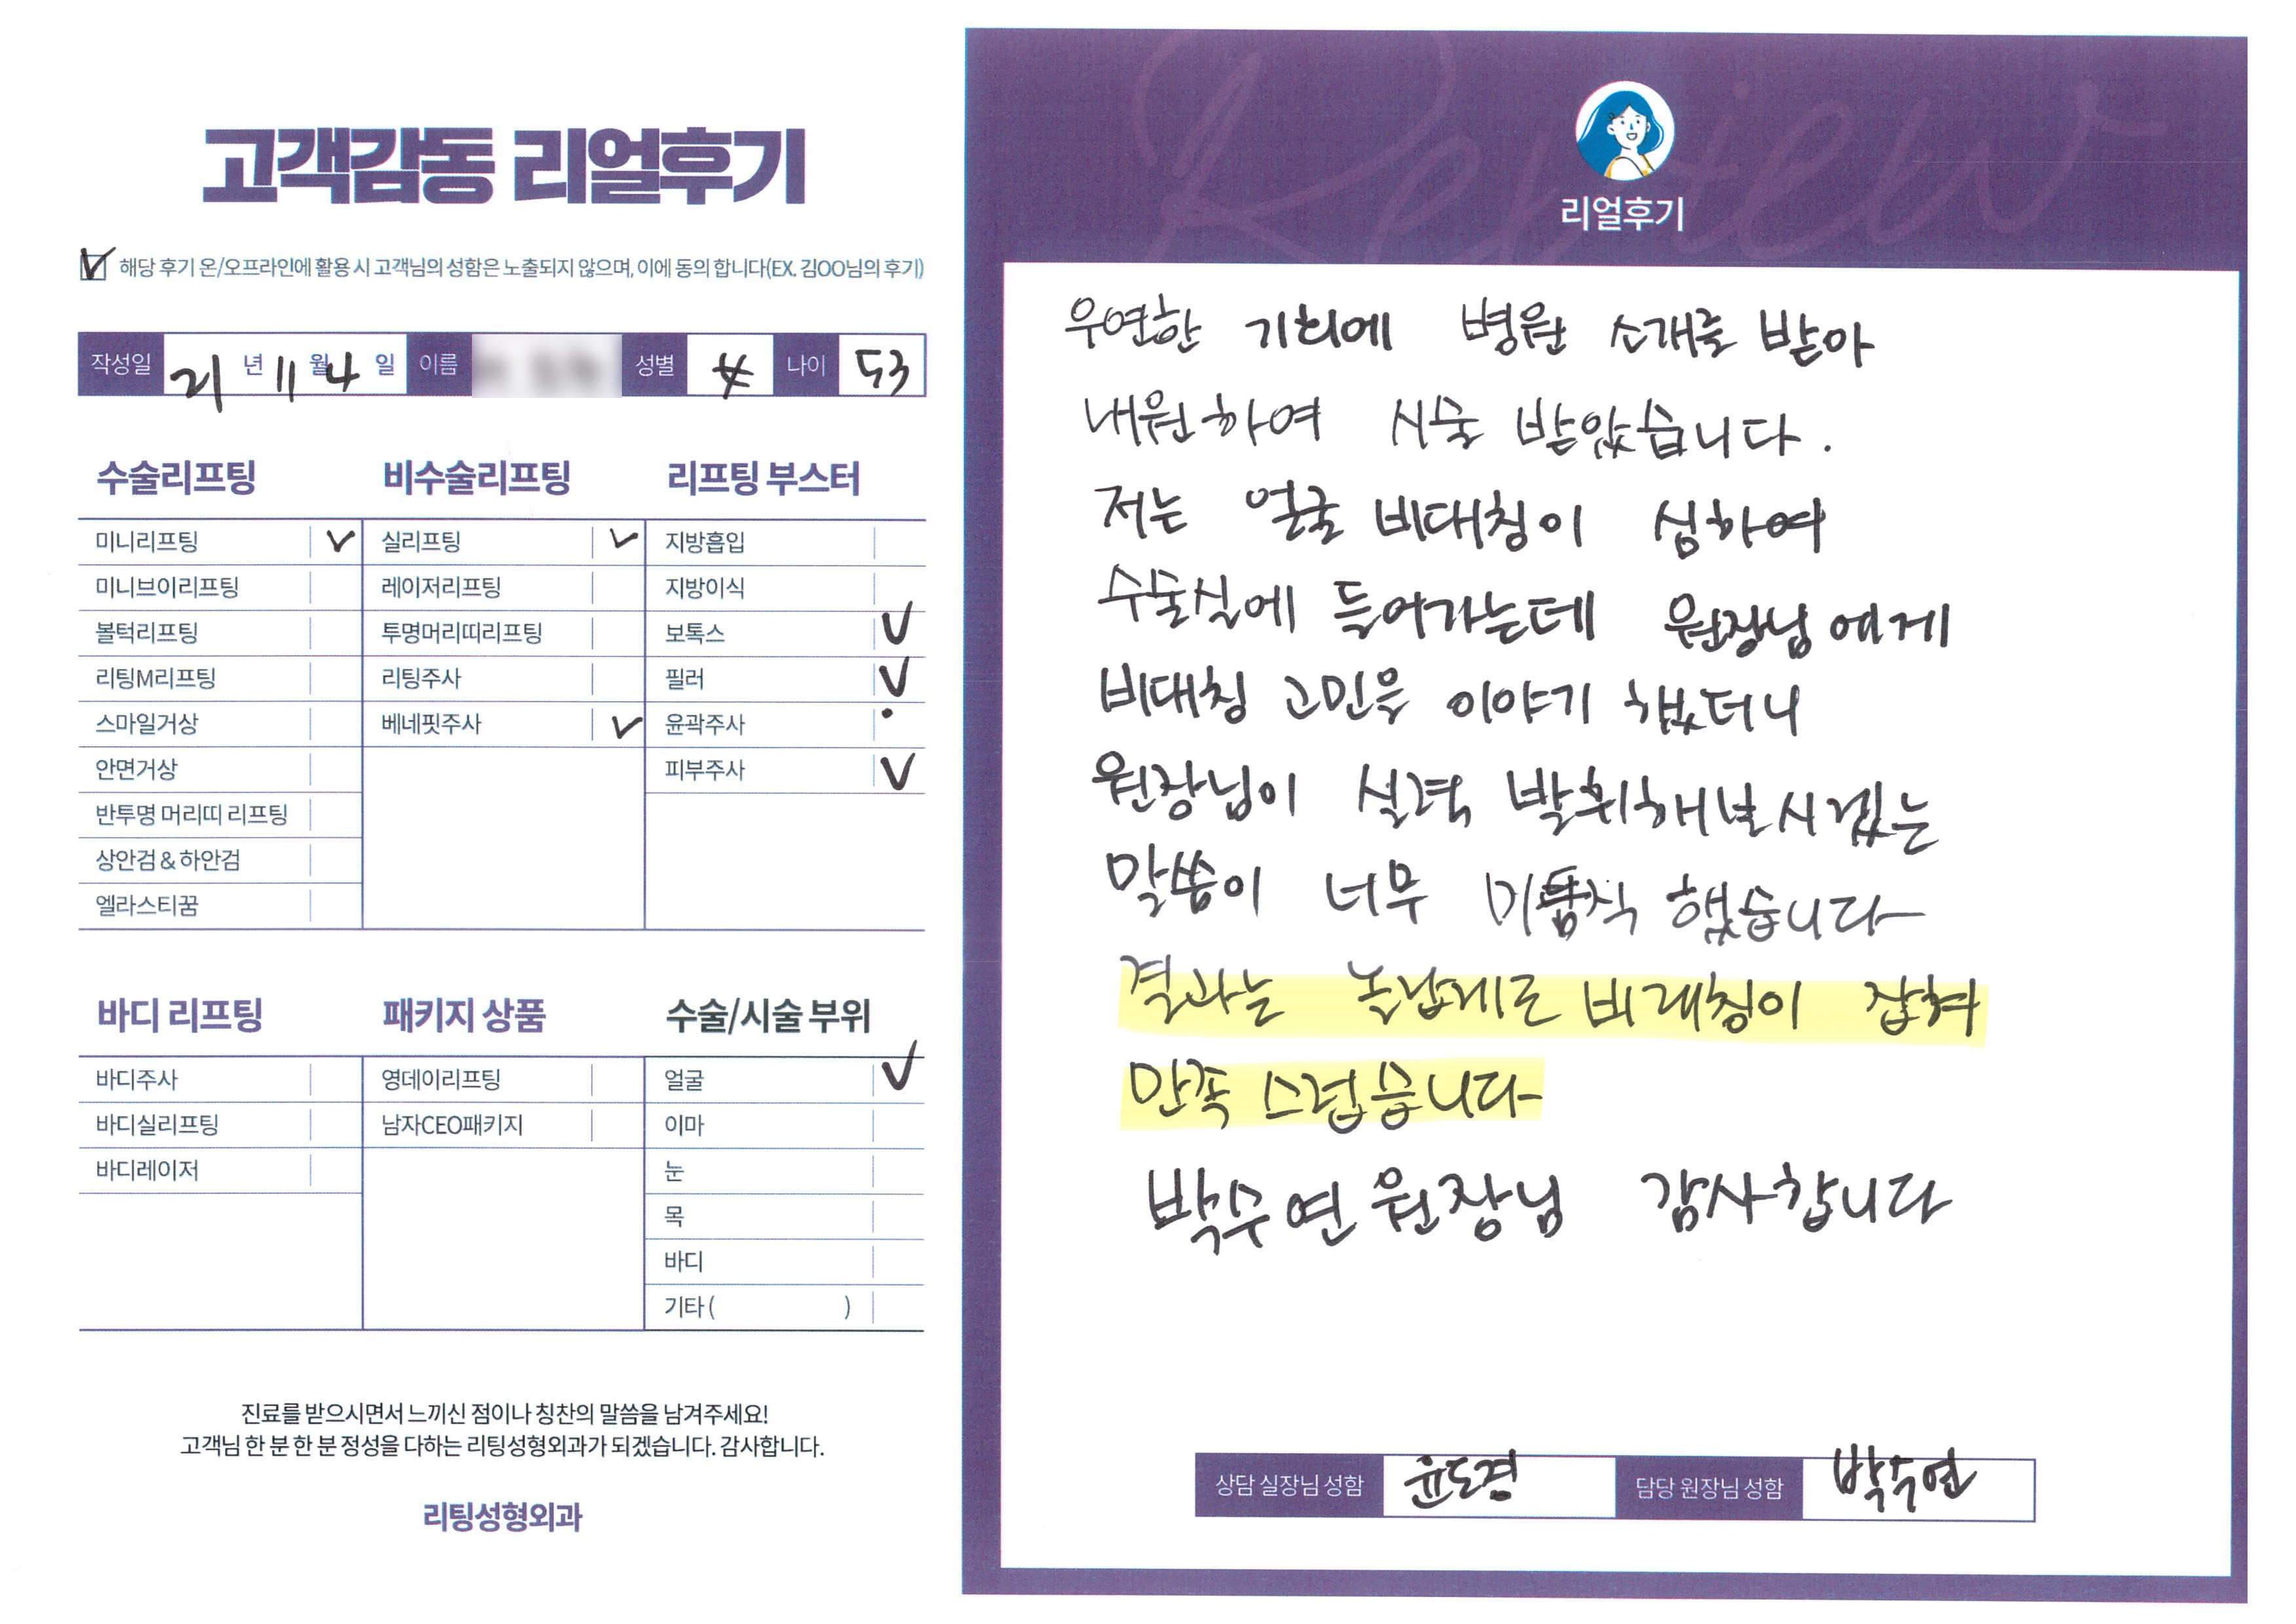 고객감동 리얼후기
해당 후기 온/오프라인에 활용 시 고객님의 성함은 노출되지 않으며, 이에 동의 합니다(EX. 김OO님의 후기)
작성일 21 년 11 월 4 일 이름 성별 나이 53
수술리프팅
미니리프팅
미니브이리프팅
볼턱리프팅
리팅M리프팅
스마일거상
안면거상
반투명 머리띠 리프팅
상안검 & 하안검
엘라스티꿈
비수술리프팅
실리프팅
레이저리프팅
투명머리띠리프팅
리팅주사
베네핏주사
리프팅 부스터
지방흡입
지방이식
보톡스
필러
윤곽주사
피부주사
바디 리프팅
바디주사
바디실리프팅
바디레이저
패키지 상품
영데이리프팅
남자CEO패키지
수술/시술 부위
얼굴
이마
눈
목
바디
기타 ( )
진료를 받으시면서 느끼신 점이나 칭찬의 말씀을 남겨주세요!
고객님 한 분 한 분 정성을 다하는 리팅성형외과가 되겠습니다. 감사합니다.
리팅성형외과
Review
리얼후기
우연한 기회에 병원 소개로 받아
내원하여 시술 받았습니다.
저는 얼굴 비대칭이 심하여
수술실에 들어가는데 원장님에게
비대칭 고민을 이야기 했더니
원장님이 실력 발휘해보시겠는
말씀이 너무 했습니다
결과는 놀랍게로 비대칭이 잡혀
만족 스럽습니다
박수연 원장님 감사합니다
상담 실장님 성함 윤도경 담당 원장님 성함 박수연